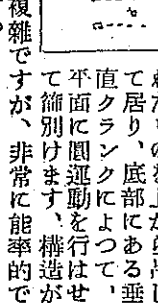 て居り、底部にある垂
直クランクによつて、
平面に圓運動を行はせ
て篩別けます、構造が
複雜ですが、非常に能率的で